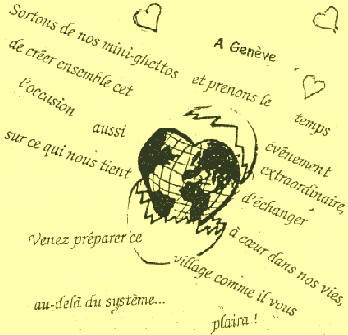 A Genève
Sortons de nos mini-ghettos
et prenons le
temps
de créer ensemble cet
événement
extraordinaire,
l'occasion
aussi
d'échanger
sur ce qui nous tient
à cœur dans nos vies,
Venez préparer ce
village comme il vous
plaira !
au-delà du système...